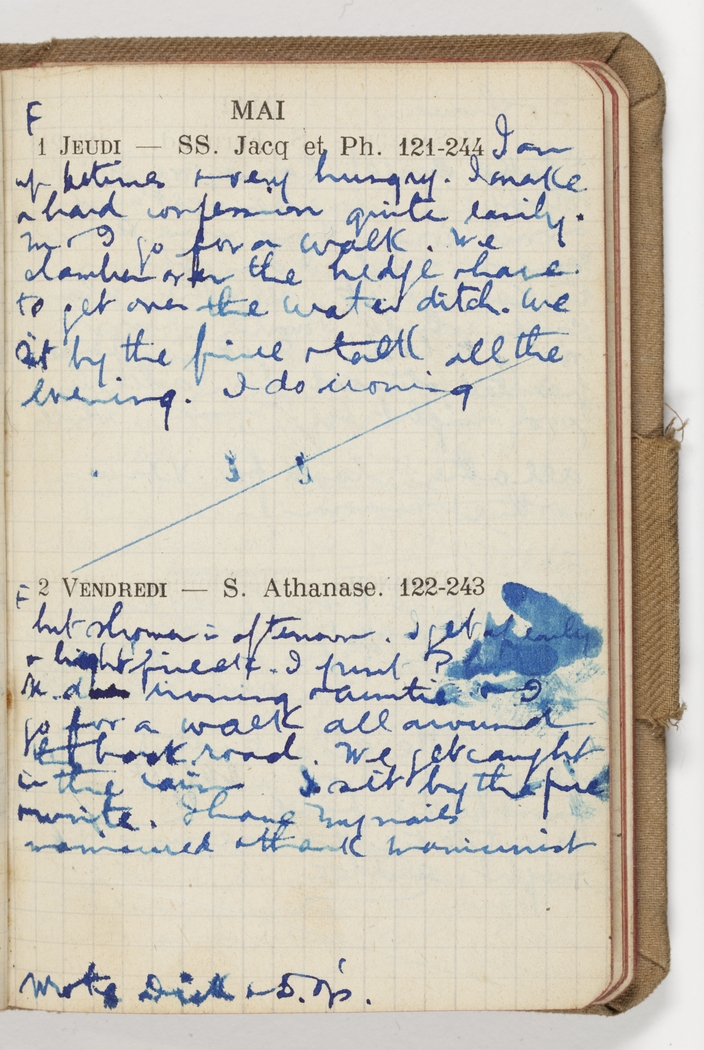 MAI
F
1 JEUDI — SS. Jacq et Ph. 121-244 I am
up betimes & very hungry. I make
a hard confession quite easily.
M & I go for a walk. We
clamber over the hedge & have
to get over the water ditch. We
sit by the fire & talk all the
evening. I do ironing
F 2 VENDREDI — S. Athanase. 122-243
but shower in afternoon. I get up early
& light fire etc. I
M. does ironing & auntie & I
go for a walk all around
back road. We get caught
in the rain & sit by the fire
& write. I have my nails
manicured & thank manicurist
Wrote Dick & D.